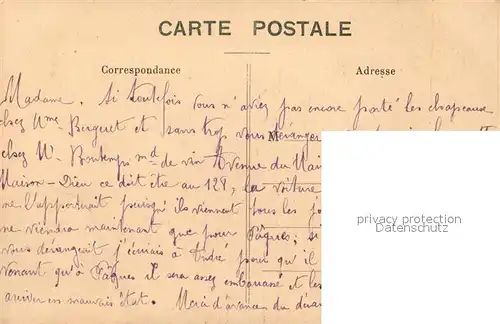 CARTE POSTALE
Correspondance
Adresse
Madame. Si toutefois vous n'aviez pas encore porté les chapeaux
chez Mme Berguet et sans trop vous déranger
M
chez Mr Bontemps md de vin Avenue du
Maison-Dieu ce doit être au 128, la voiture
ne l'apporterait puisqu'ils viennent tous les
ne viendra maintenant que pour Pâques; si
vous dérangeait j'écrirais à André pour qu'il
venant qu'à Pâques il sera assez embarrassé et les
arriver en mauvais état. Merci d'avance du
privacy protection
Datenschutz